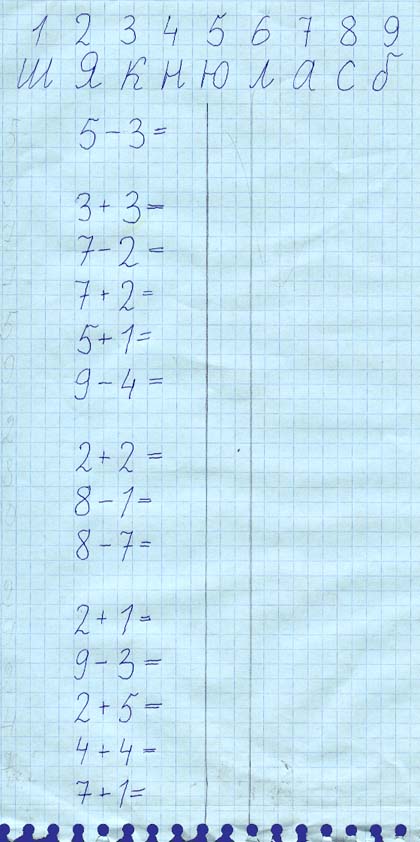 1 2 3 4 5 6 7 8 9
Ш Я К Н Ю Л А С Б
5-3=
3+3=
7-2=
7+2=
5+1=
9-4=
2+2=
8-1=
8-7=
2+1=
9-3=
2+5=
4+4=
7+1=